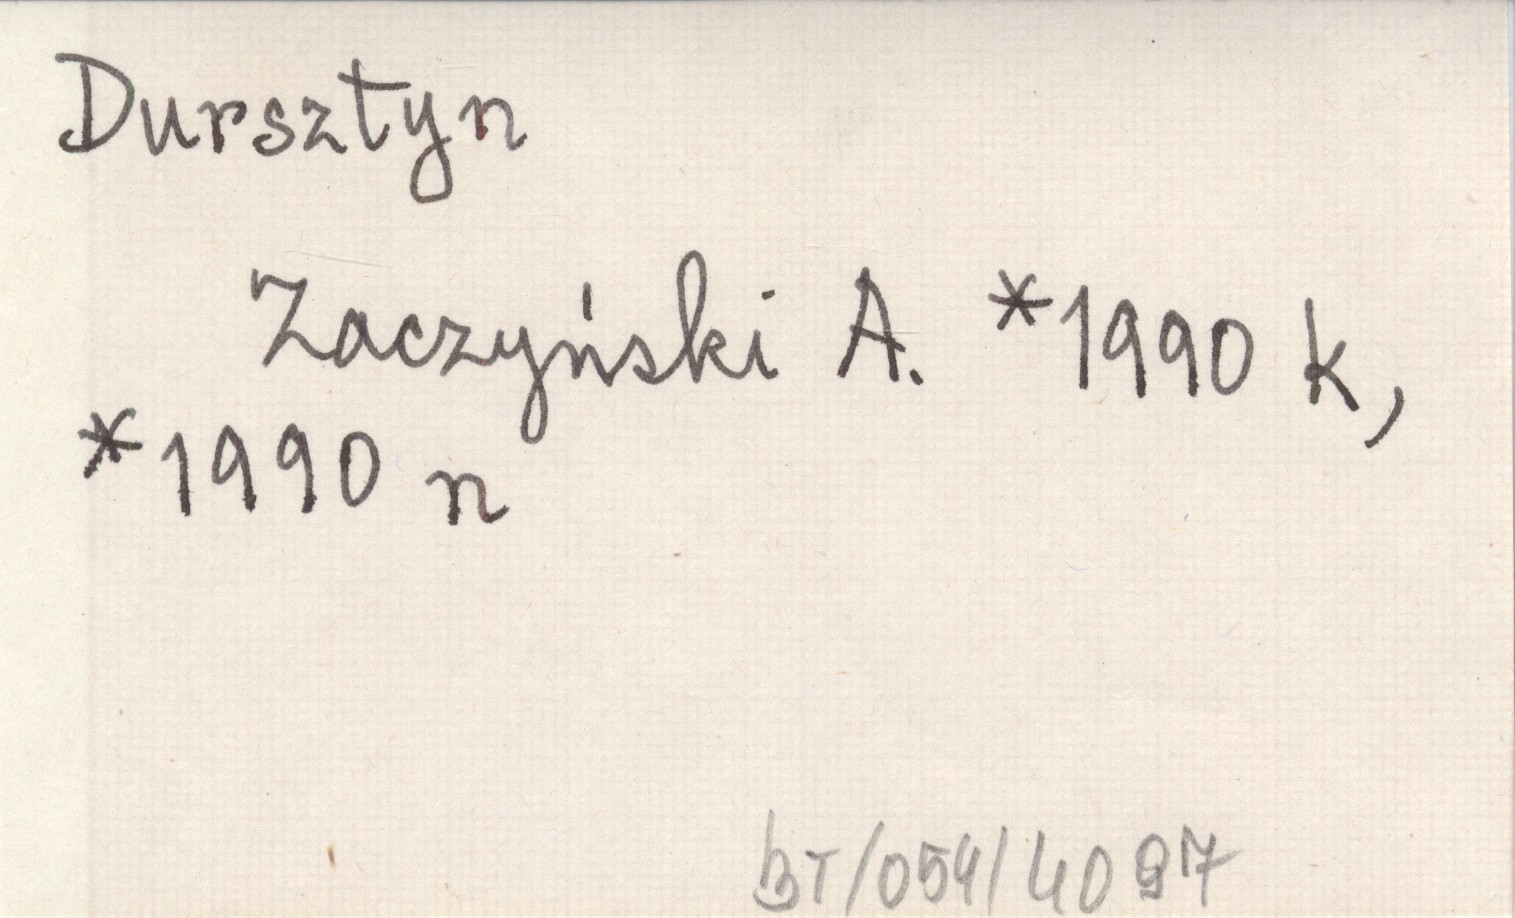 Dursztyn
Zaczyński A. *1990 k,
*1990 n
BT/054/4097